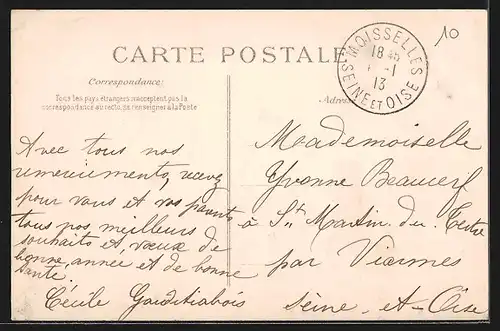 10
CARTE POSTALE
MOISSELLES
18 45
-1
13
SEINE ET OISE
Correspondance
Tous les pays étrangers n'acceptent pas la
correspondance au recto, se renseigner à la Poste
Adresse
Avec tous nos
remerciements, recevez
pour vous et vos parents
tous nos meilleurs
souhaits et vœux de
bonne année et de bonne
santé,
Cécile
Mademoiselle
Yvonne
à St Martin du Tertre
par Viarmes
Seine-et-Oise